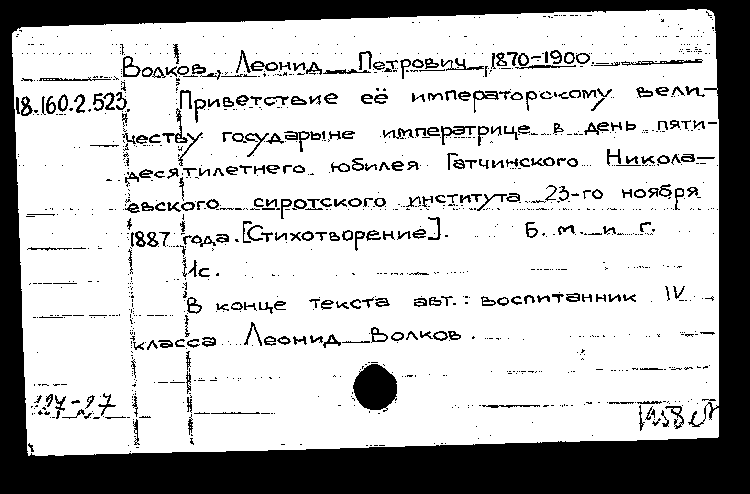 Волков, Леонид Петрович, 1870-1900
18.160.2.523. Приветствие её императорскому вели-
честву государыне императрице в день пяти-
десятилетнего юбилея Гатчинского Никола-
евского сиротского института 23-го ноября
1887 года. [Стихотворение]. Б. м. и г.
1с.
В конце текста авт.: воспитанник IV
класса Леонид Волков.
127-27